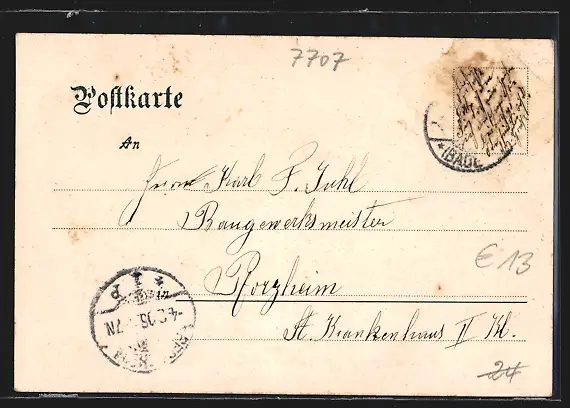 7707
Postkarte
An
Herrn Karl F. Juhl
Baugewerksmeister
Pforzheim
St. Krankenhaus II Kl.
(BADE
€ 13
24